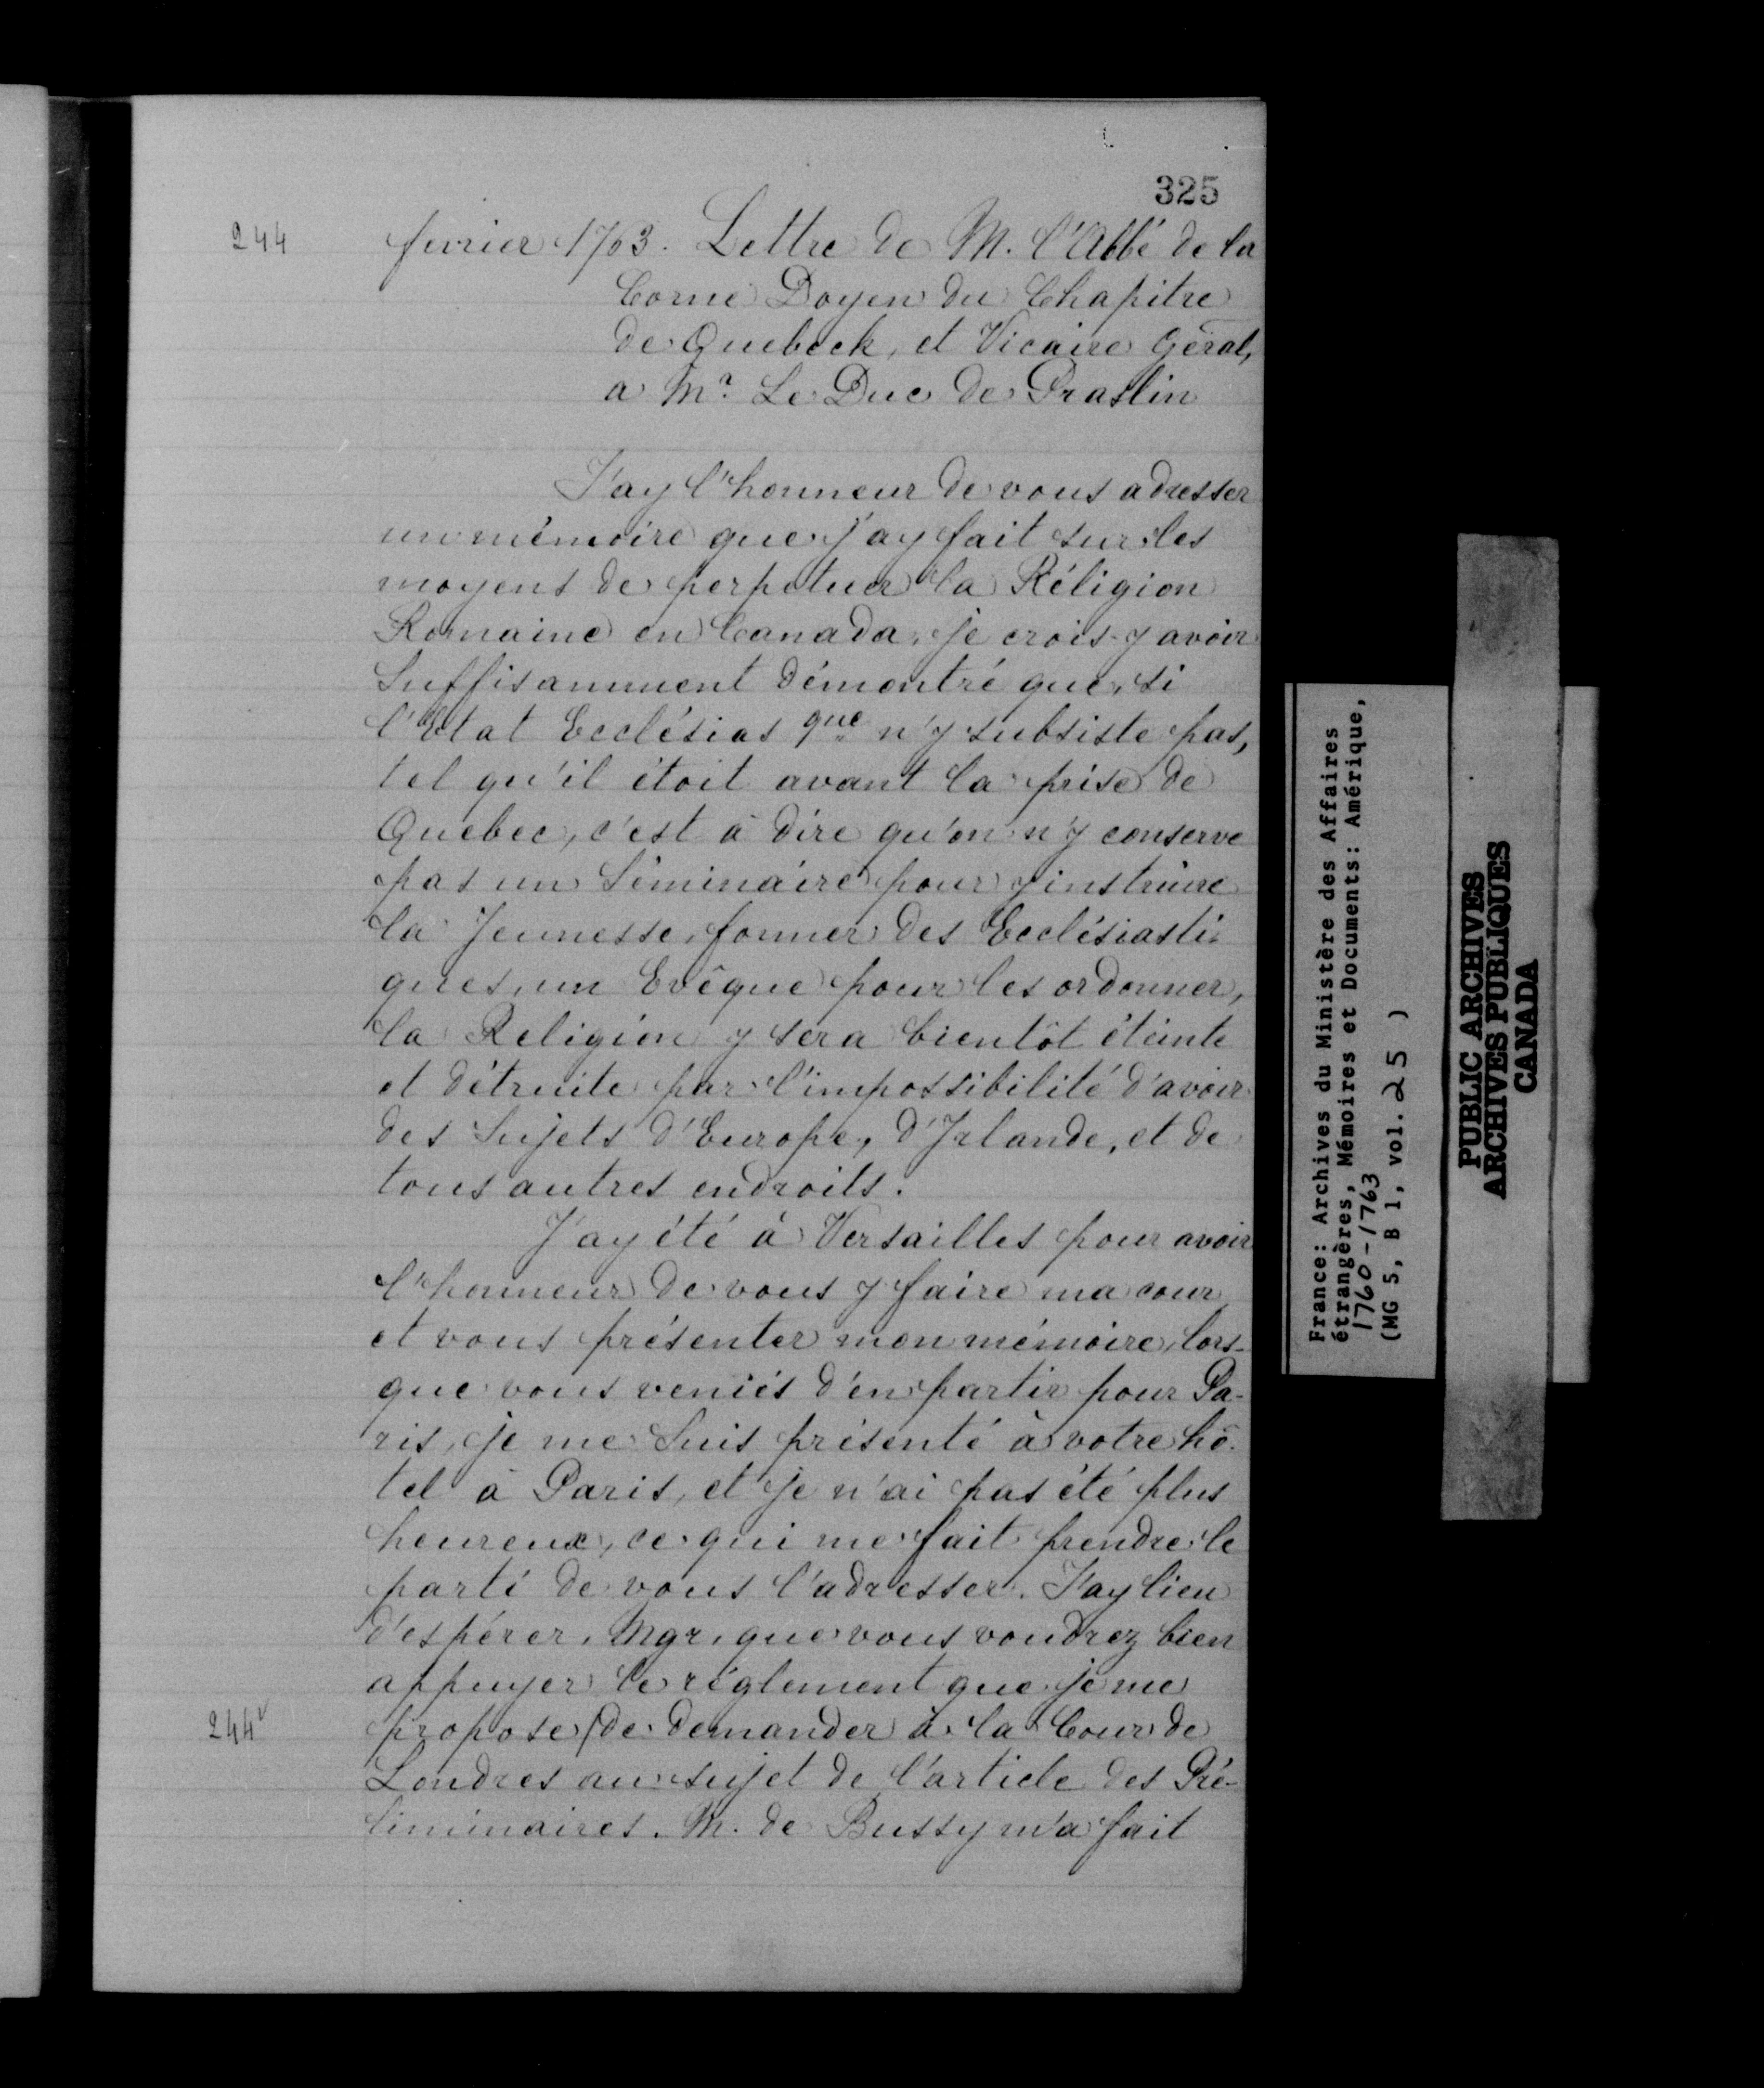 325
244
fevrier 1763. Lettre de M. l'Abbé de la
Corne Doyen du Chapitre
de Quebeck, et Vicaire Géral,
a Mr. Le Duc de Praslin
J'ay l'honneur de vous adresser
un mémoire que j'ay fait sur les
moyens de perpetuer la Réligion
Romaine en Canada, je crois y avoir
suffisamment démontré que, si
l'Etat Ecclésiasque n'y subsiste pas,
tel qu'il étoit avant la prise de
Quebec, c'est à dire qu'on n'y conserve
pas un Séminaire pour y instruire
la Jeunesse, former des Ecclésiasti-
ques, un Evêque pour les ordonner,
la Religion y sera bientôt éteinte
et détruite par l'impossibilité d'avoir
des sujets d'Europe, d'Irlande, et de
tous autres endroits.
J'ay été à Versailles pour avoir
l'honneur de vous y faire ma cour
et vous présenter mon mémoire, lors-
que vous veniés d'en partir pour Pa-
ris, je me suis présenté à votre hô-
tel à Paris, et je n'ai pas été plus
heureux, ce qui me fait prendre le
parti de vous l'adresser. J'ay lieu
d'espérer, Mgr, que vous voudrez bien
appuyer le réglement que je me
244v
propose (de demander à la Cour de
Londres au sujet de l'article des Pré-
liminaires. M. de Bussy m'a fait
France: Archives du Ministère des Affaires
étrangères, Mémoires et Documents: Amérique,
1760-1763
(MG 5, B 1, vol. 25 )
PUBLIC ARCHIVES
ARCHIVES PUBLIQUES
CANADA